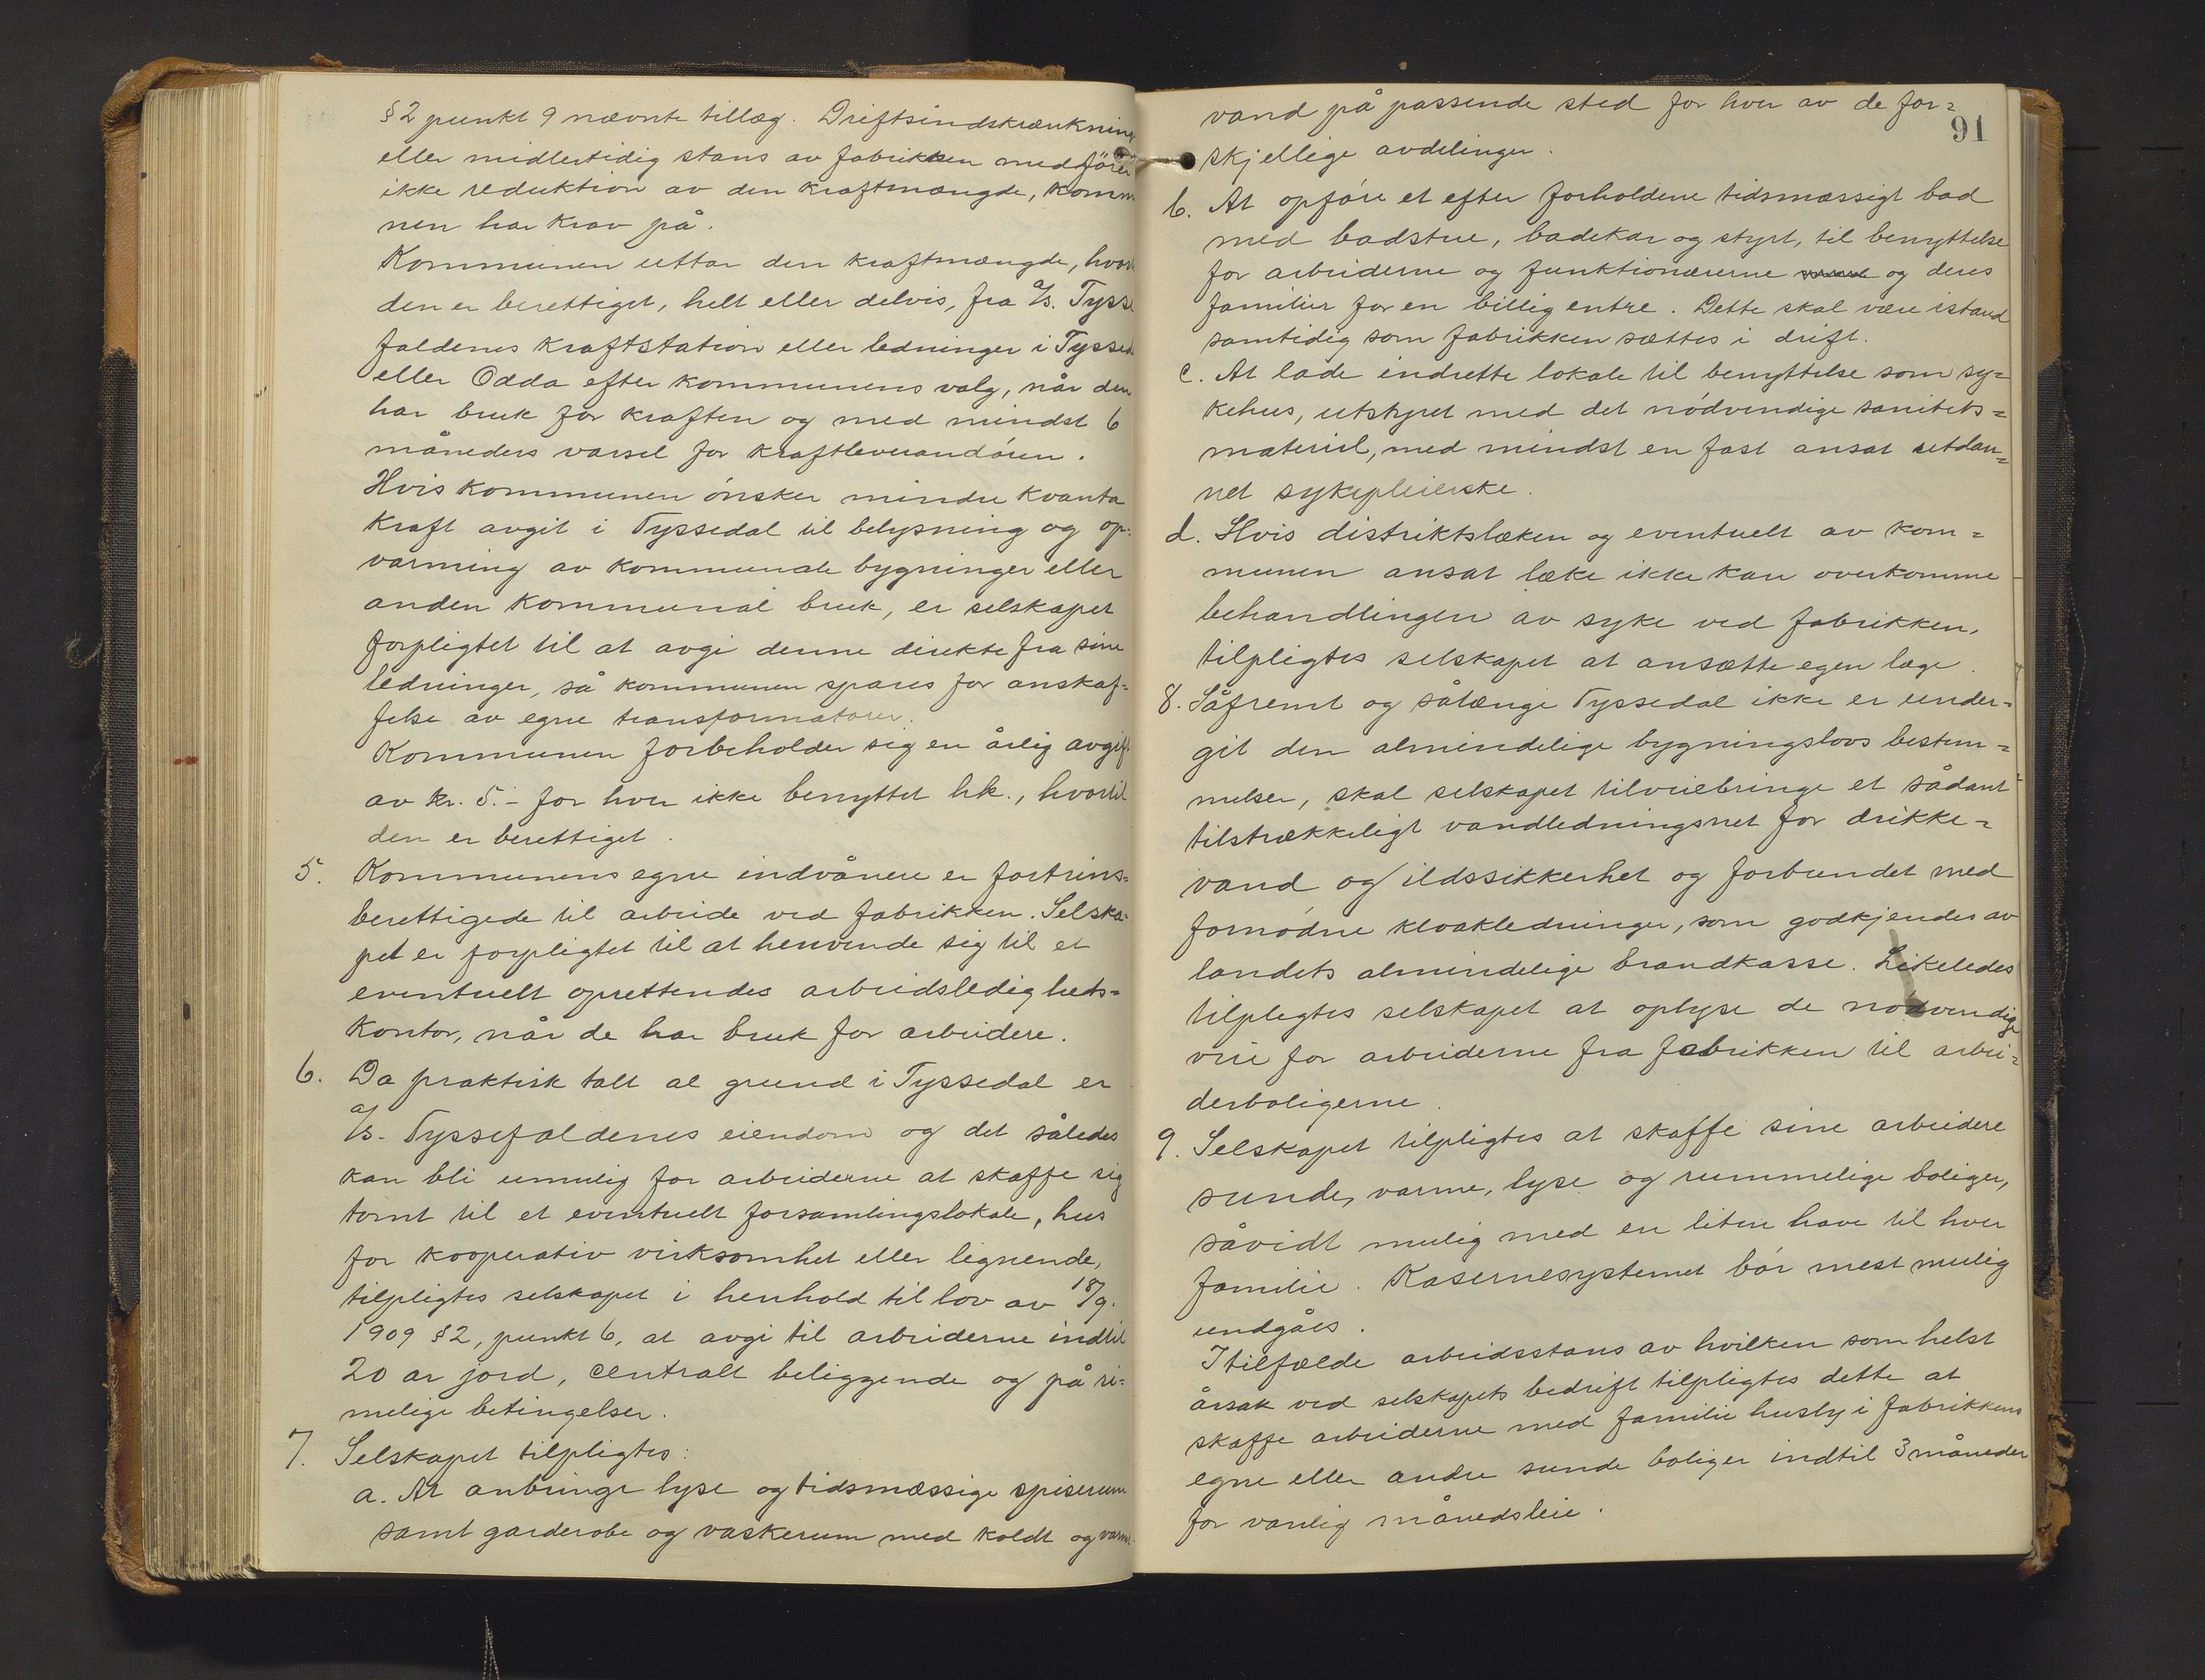 §2 punkt 9 nævnte tillæg. Driftsindskrænkning
eller midlertidig stans av fabrikken medfører
ikke reduktion av den kraftmængde, komm
nen har krav på.
Kommunen uttar den kraftmængde, hvort
den er berettiget, helt eller delvis, fra a/s. Tysse
faldenes kraftstation eller ledninger i Tyssed
eller Odda efter kommunens valg, når den
har bruk for kraften og med mindst 6
måneders varsel for kraftleverandøren.
Hvis kommunen ønsker mindre kvanta
kraft avgit i Tyssedal til belysning og op-
varming av kommunale bygninger eller
anden kommunal bruk, er selskapet
forpligtet til at avgi denne direkte fra sine
ledninger, så kommunen spares for anskaf=
felse av egne transformatorer.
Kommunen forbeholder sig en årlig avgift
av kr. 5.- for hver ikke benyttet hk., hvortil
den er berettiget.
5. Kommunens egne indvånere er fortrins=
berettigede til arbeide ved fabrikken. Selska-
pet er forpligtet til at henvende sig til et
eventuelt oprettendes arbeidsledigheds=
kontor, når de har bruk for arbeidere.
6. Da praktisk talt al grund i Tyssedal er
a/s. Tyssefaldenes eiendom og det således
kan bli umulig for arbeiderne at skaffe sig
tomt til et eventuelt forsamlingslokale, hus
for kooperativ virksomhet eller lignende,
tilpligtes selskapet i henhold til lov av 18/9.
1909 §2, punkt 6, at avgi til arbeiderne indtil
20 ar jord, centralt beliggende og på ri=
melige betingelser.
7. Selskapet tilpligtes:
a. At anbringe lyse og tidsmæssige spiserum
samt garderobe og vaskerum med koldt og varmt
91
vand på passende sted for hver av de for=
skjellige avdelinger.
b. At opføre et efter forholdene tidsmæssigt bad
med badstue, badekar og styrt, til benyttelse
for arbeiderne og funktionærerne og deres
familier for en billig entre. Dette skal være istand
samtidig som fabrikken sættes i drift.
c. At lade indrette lokale til benyttelse som sy=
kehus, utstyret med det nødvendige sanitets=
materiel, med mindst en fast ansat utdan=
net sykepleierske.
d. Hvis distriktslæken og eventuelt av kom=
munen ansat læke ikke kan overkomme
behandlingen av syke ved fabrikken,
tilpligtes selskapet at ansætte egen læge.
8. Såfremt og sålænge Tyssedal ikke er under=
git den almindelige bygningslovs bestem=
melser, skal selskapet tilveiebringe et sådant
tilstrækkeligt vandledningsnet for drikke=
vand og ildssikkerhet og forbundet med
fornødne kloakledninger, som godkjendes av
landets almindelige brandkasse. Likeledes
tilpligtes selskapet at oplyse de nødvendige
veie for arbeiderne fra fabrikken til arbei=
derboligerne.
9. Selskapet tilpligtes at skaffe sine arbeidere
sunde, varme, lyse og rummelige boliger,
såvidt mulig med en liten have til hver
familie. Kasernesystemet bør mest mulig
undgåes.
I tilfælde arbeidsstans av hvilken som helst
årsak ved selskapets bedrift tilpligtes dette at
skaffe arbeiderne med familie husly i fabrikkens
egne eller andre sunde boliger indtil 3 måneder
for vanlig månedsleie.